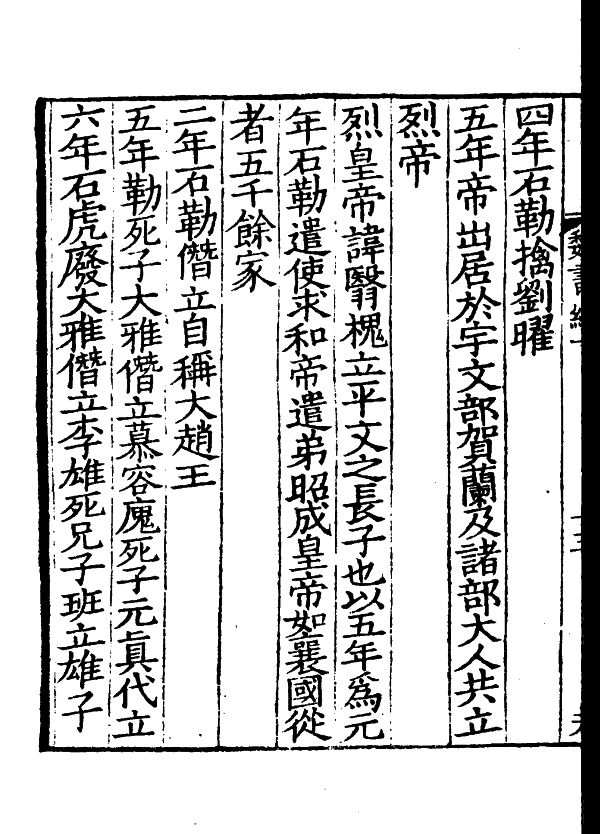 四年石勒擒劉曜
五年帝出居於宇文部賀蘭及諸部大人共立
烈帝
烈皇帝諱翳槐立平文之長子也以五年爲元
年石勒遣使求和帝遣弟昭成皇帝如襄國從
者五千餘家
二年石勒僭立自稱大趙王
五年勒死子大雅僭立慕容廆死子元真代立
六年石虎廢大雅僭立李雄死兄子班立雄子